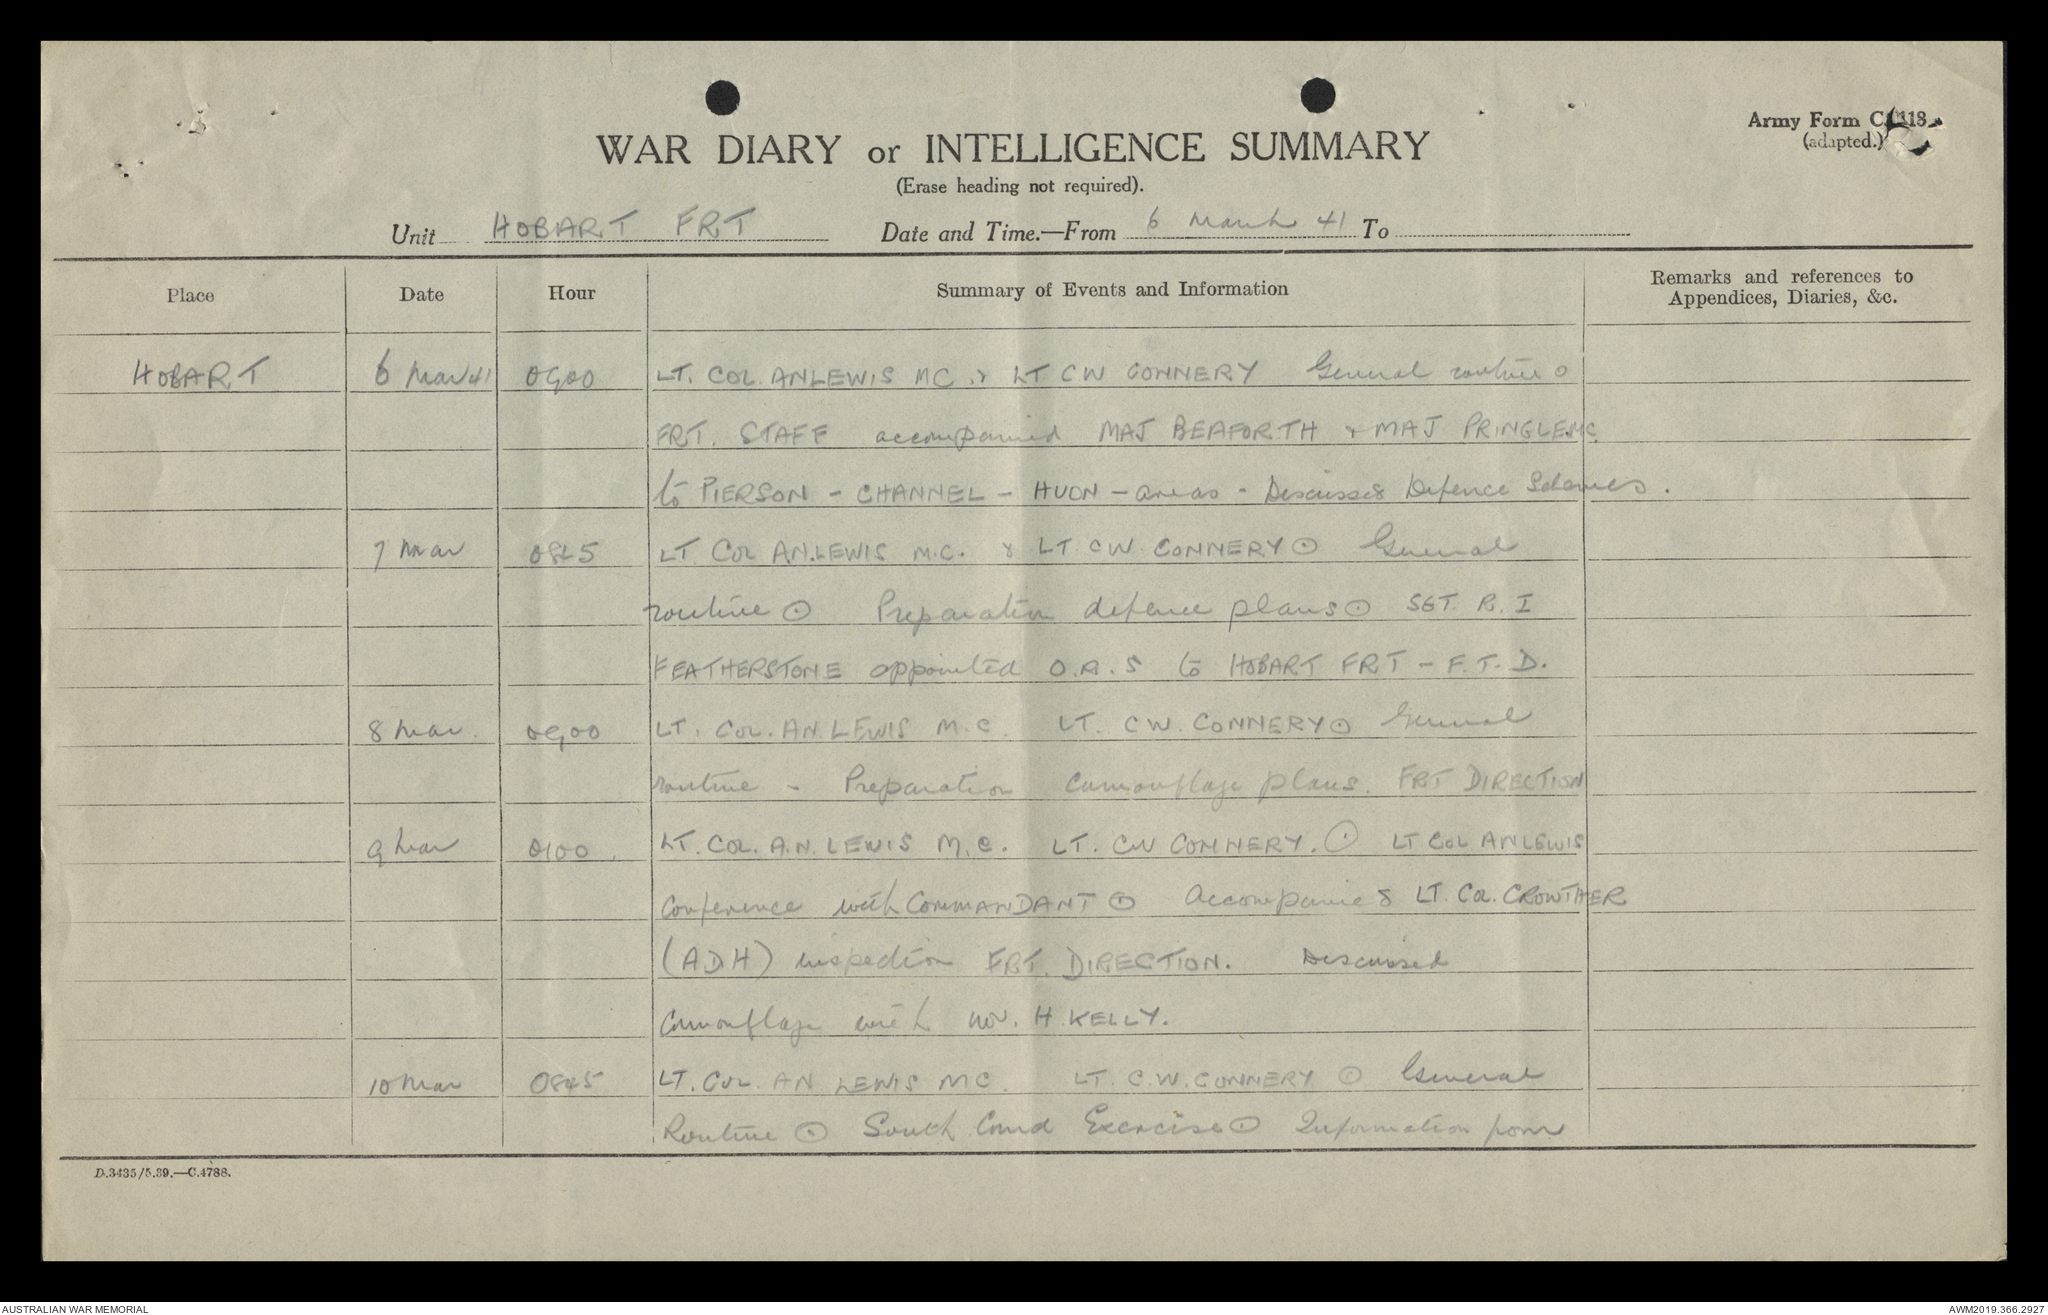 Army Form C.2118.
(adapted.)
WAR DIARY or INTELLIGENCE SUMMARY
(Erase heading not required).
Unit HOBART FRT Date and Time.—From 6 March 41 To
Place Date Hour Summary of Events and Information Remarks and references to Appendices, Diaries, &c.
HOBART 6 Mar 41 0900 LT. COL. AN LEWIS MC. & LT CW CONNERY General routine ⊙
FRT. STAFF accompanied MAJ & MAJ PRINGLE MC.
to PIERSON - CHANNEL - HUON - areas - Discussed Defence Schemes.
7 Mar 0845 LT COL A.N. LEWIS M.C. & LT CW. CONNERY ⊙ General
routine ⊙ Preparation defence plans ⊙ SGT. R. I
FEATHERSTONE appointed O.R.S to HOBART FRT - F.T.D.
8 Mar. 0900 LT. COL. AN. LEWIS M.C. LT. CW. CONNERY ⊙ General
routine - Preparation camouflage plans. FRT DIRECTION
9 Mar 0100 LT. COL. A.N. LEWIS M.C. LT. CW CONNERY. ⊙ LT COL AN LEWIS
Conference with COMMANDANT ⊙ Accompanied LT. COL. CROWTHER
(ADH) inspection FRT. DIRECTION. Discussed
Camouflage with H. KELLY.
10 Mar 0845 LT. COL. AN LEWIS MC. LT. C.W. CONNERY ⊙ General
Routine ⊙ South Comd Exercise ⊙ Information from
D.3435/5.39.—C.4788.
AUSTRALIAN WAR MEMORIAL
AWM2019.366.2927